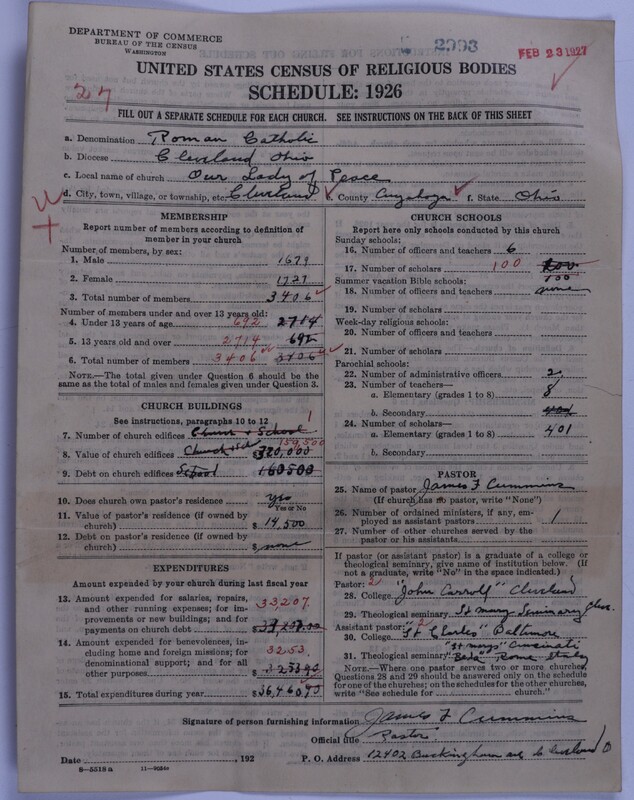 DEPARTMENT OF COMMERCE
BUREAU OF THE CENSUS
WASHINGTON
2993
FEB 23 1927
UNITED STATES CENSUS OF RELIGIOUS BODIES
SCHEDULE: 1926
27
FILL OUT A SEPARATE SCHEDULE FOR EACH CHURCH. SEE INSTRUCTIONS ON THE BACK OF THIS SHEET
a. Denomination Roman Catholic
b. Diocese Cleveland Ohio
c. Local name of church Our Lady of Peace
d. City, town, village, or township, etc. Cleveland e. County Cuyahoga f. State Ohio
MEMBERSHIP
Report number of members according to definition of
member in your church
Number of members, by sex:
1. Male 1679
2. Female 1727
3. Total number of members 3406
Number of members under and over 13 years old:
4. Under 13 years of age 692 2714
5. 13 years old and over 2714 692
6. Total number of members 3406 3406
NOTE.—The total given under Question 6 should be the
same as the total of males and females given under Question 3.
CHURCH BUILDINGS
See instructions, paragraphs 10 to 12
7. Number of church edifices Church + School 1
8. Value of church edifices Church + Sch 159,500 $320,000
9. Debt on church edifices School 160500
10. Does church own pastor's residence yes
Yes or No
11. Value of pastor's residence (if owned by
church) $ 14,500
12. Debt on pastor's residence (if owned by
church) $ none
EXPENDITURES
Amount expended by your church during last fiscal year
13. Amount expended for salaries, repairs,
and other running expenses; for im-
provements or new buildings; and for
payments on church debt 33,207. $
14. Amount expended for benevolences, in-
cluding home and foreign missions; for
denominational support; and for all
other purposes 3253. $
15. Total expenditures during year $36,460.93
CHURCH SCHOOLS
Report here only schools conducted by this church
Sunday schools:
16. Number of officers and teachers 6
17. Number of scholars 100
100
Summer vacation Bible schools:
18. Number of officers and teachers none
19. Number of scholars
Week-day religious schools:
20. Number of officers and teachers
21. Number of scholars
Parochial schools:
22. Number of administrative officers 2
23. Number of teachers—
a. Elementary (grades 1 to 8) 8
b. Secondary 401
24. Number of scholars—
a. Elementary (grades 1 to 8) 401
b. Secondary
PASTOR
25. Name of pastor James F Cummins
(If church has no pastor, write "None")
26. Number of ordained ministers, if any, em-
ployed as assistant pastors 1
27. Number of other churches served by the
pastor or his assistants
If pastor (or assistant pastor) is a graduate of a college or
theological seminary, give name of institution below. (If
not a graduate, write "No" in the space indicated.)
Pastor: 2
28. College "John Carroll" Cleveland
29. Theological seminary St Mary Seminary Cleve.
Assistant pastor: 2
30. College "St Charles" Baltimore
"St Marys" Cincinnati
31. Theological seminary "Beda" Rome
NOTE.—Where one pastor serves two or more churches,
Questions 28 and 29 should be answered only on the schedule
for one of the churches; on the schedules for the other churches,
write "See schedule for church."
Signature of person furnishing information James F Cummins
Official title Pastor
Date , 192 P. O. Address 12402 Buckingham ave Cleveland O
8—5518 a 11—9034o